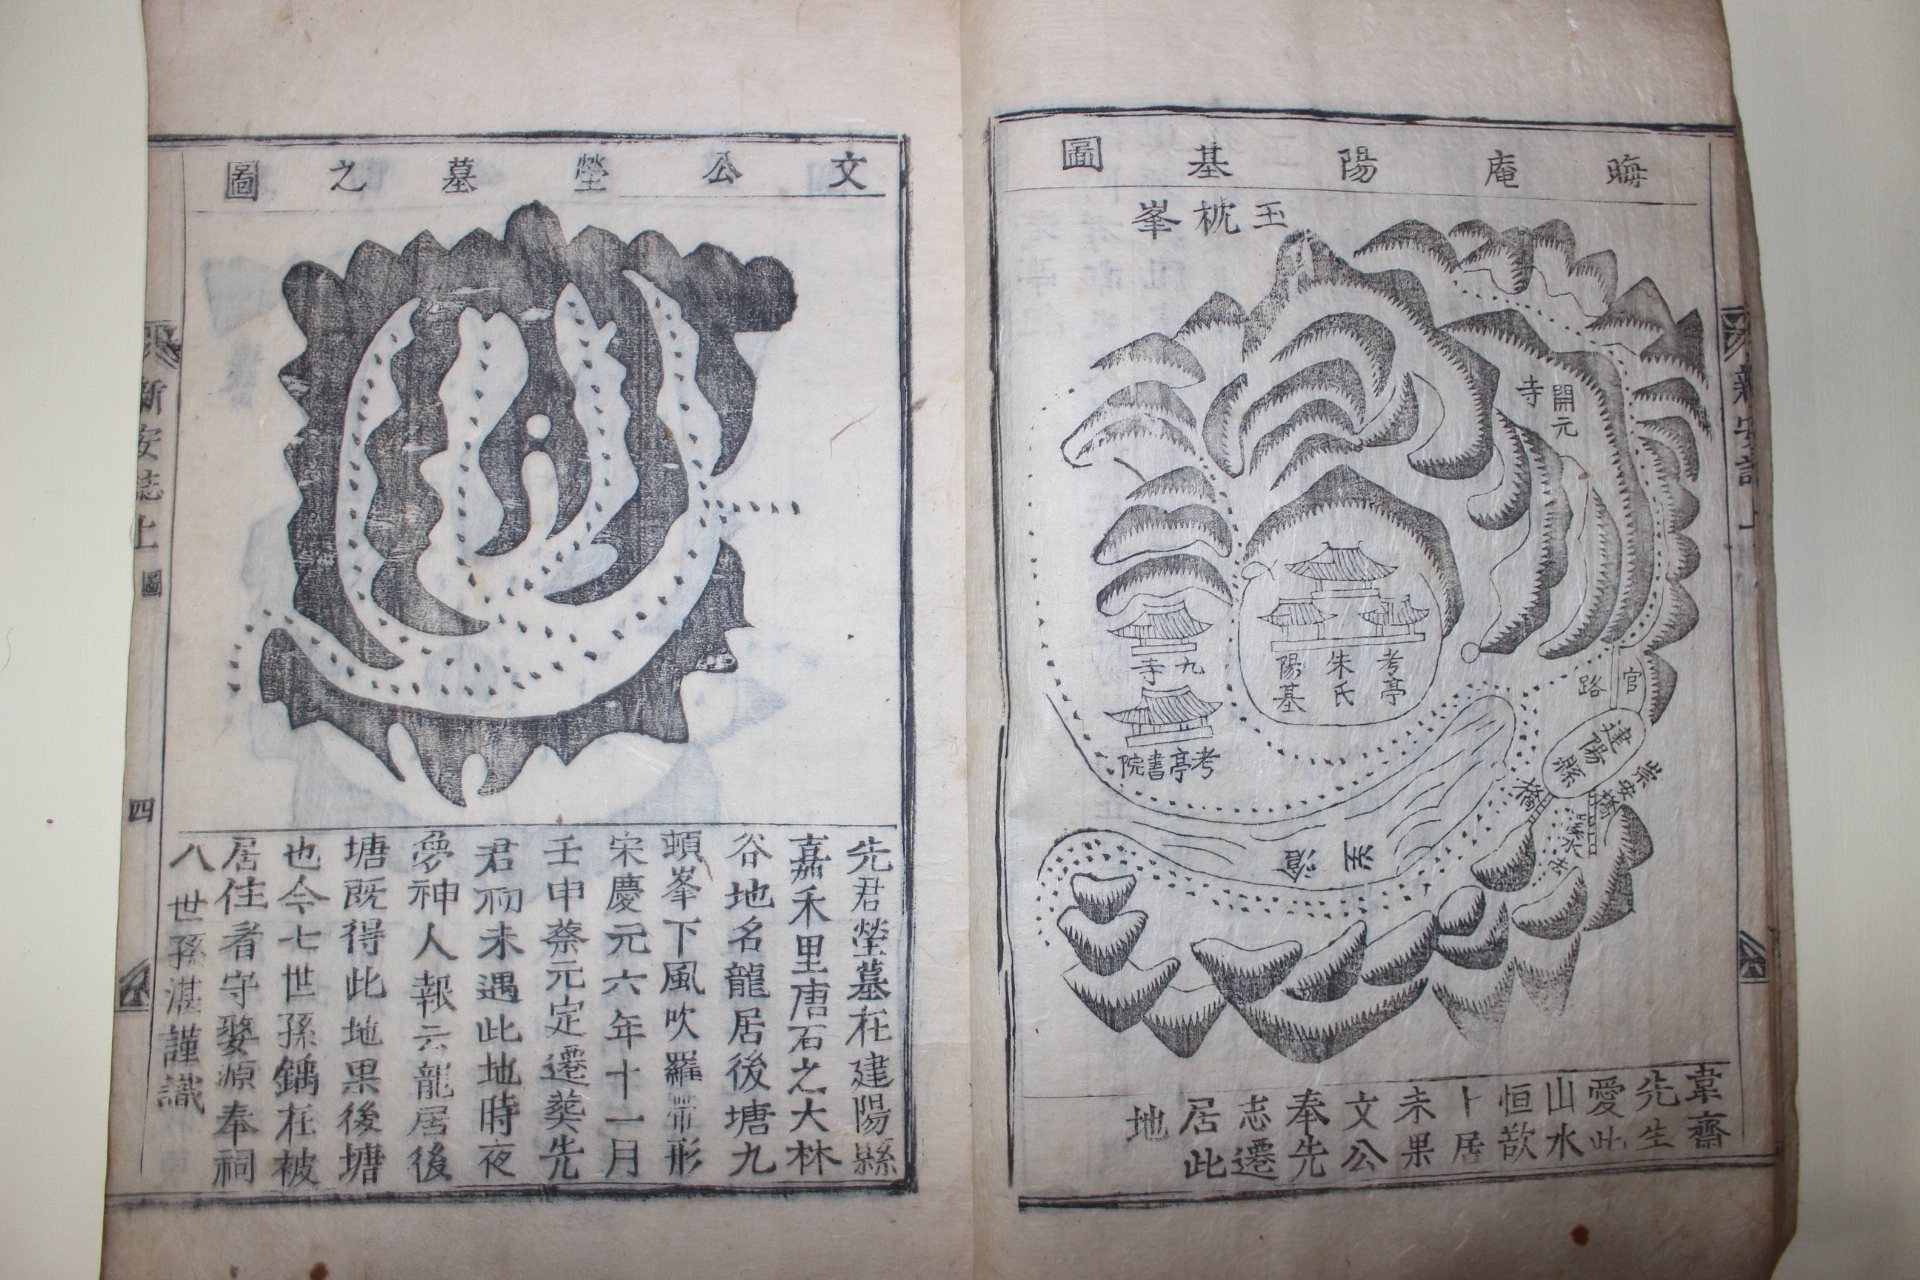 晦庵陽基圖
玉枕峯
開元
寺
考亭
朱氏
陽基
九寺
考亭書院
官
路
建陽縣
崇安
橋
橋
溪水去
滄
韋齋
先生
愛此
山水
恒歆
卜居
未果
文公
奉先
志遷
居此
地
文公塋墓之圖
先君塋墓在建陽縣
嘉禾里唐石之大林
谷地名龍居後塘九
頓峯下風吹羅帶形
宋慶元六年十一月
壬申蔡元定遷葬先
君初未遇此地時夜
夢神人報云龍居後
塘既得此地果後塘
也今七世孫鑄在被
居住者守婺源奉祠
八世孫湛謹識
新安誌上 圖
四